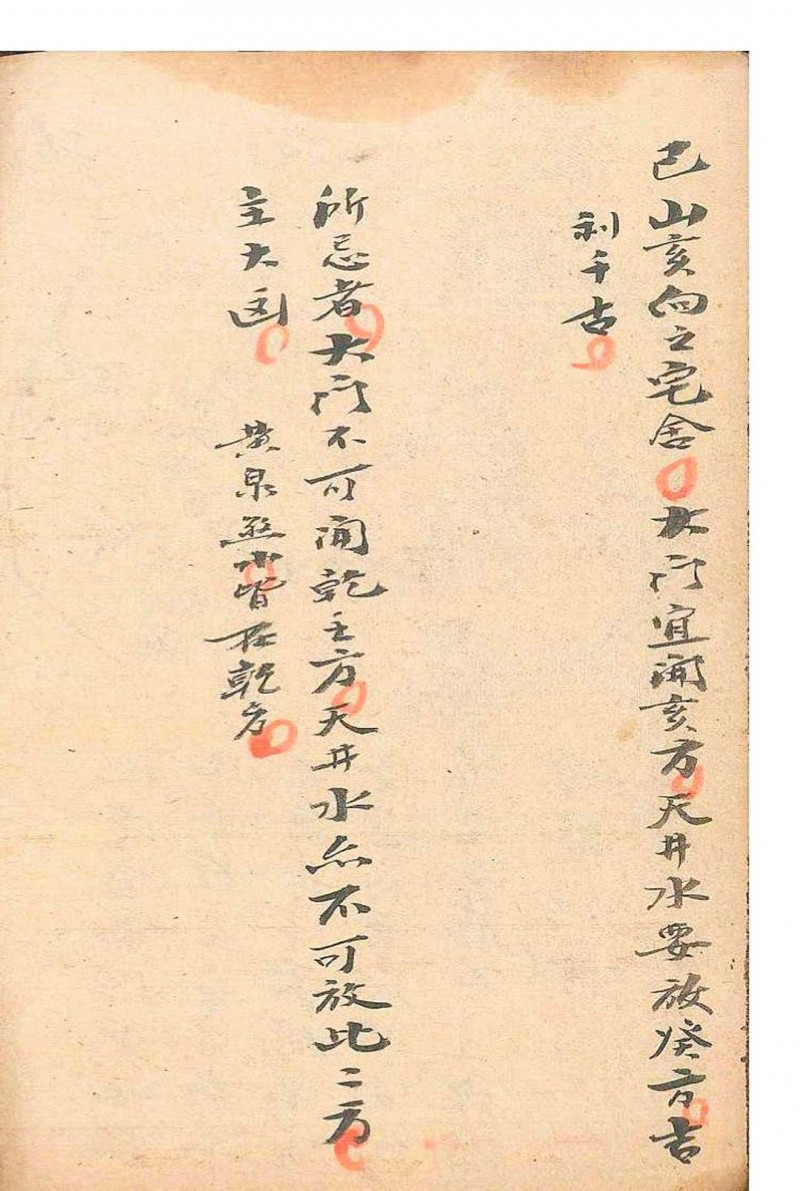 巳山亥向之宅舍大门宜開亥方天井水要放癸方吉
利千古
所忌者大门不可開乾壬方天井水亦不可放此二方
主大凶　黄泉煞水皆在乾方